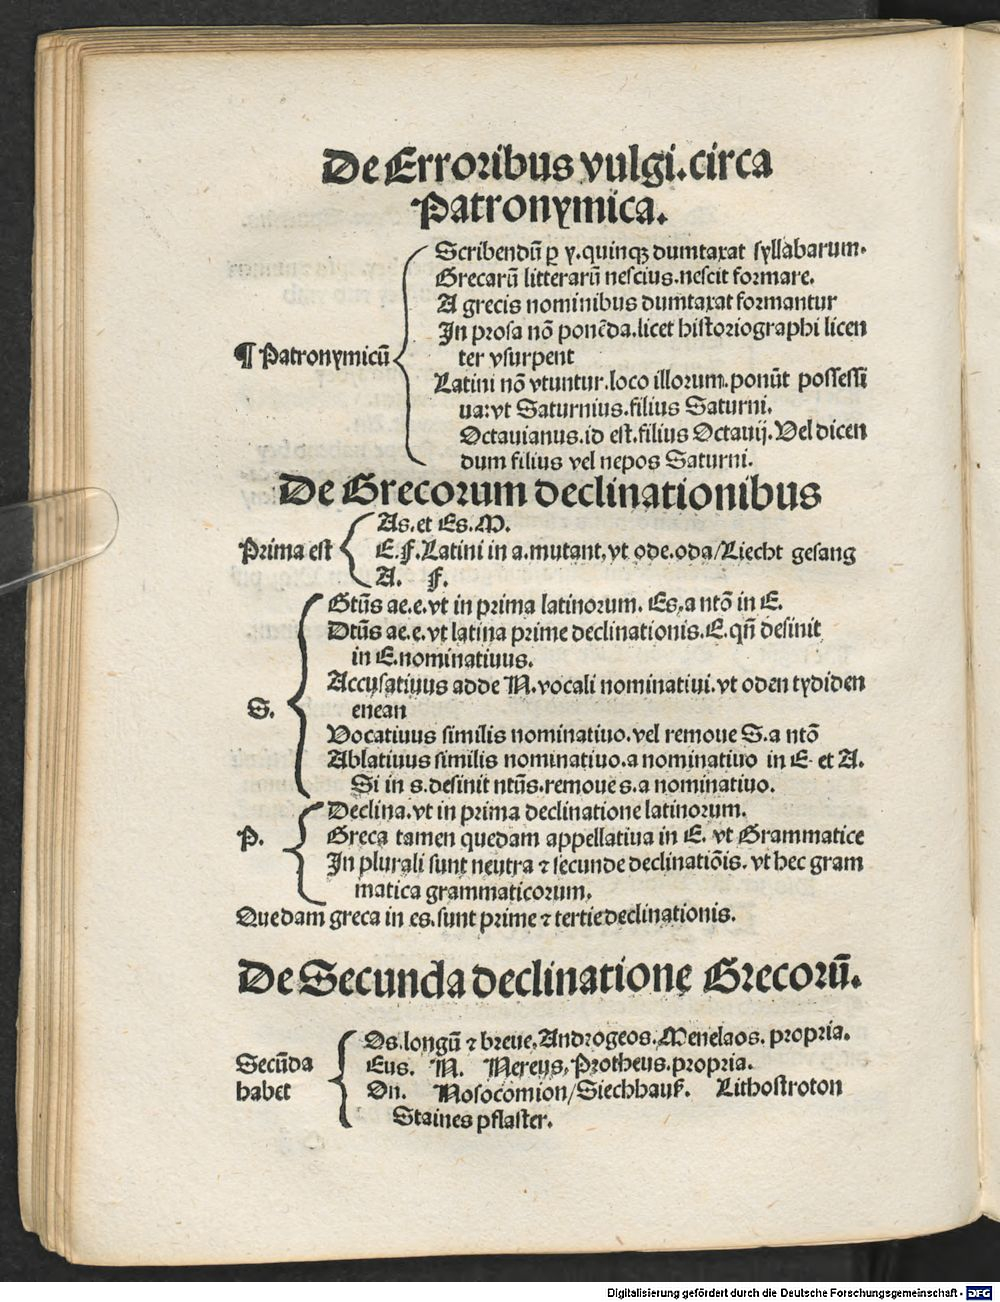 De Erroribus vulgi. circa
Patronymica.
Scribendū ꝑ y. quinqꝫ dumtaxat syllabarum.
Grecarū litterarū nescius. nescit formare.
A grecis nominibus dumtaxat formantur
In prosa nō ponēda. licet historiographi licen
ter vsurpent
¶ Patronymicū
Latini nō vtuntur. loco illorum. ponūt possessi
ua: vt Saturnius. filius Saturni.
Octauianus. id est. filius Octauij. Vel dicen
dum filius vel nepos Saturni.
De Grecorum declinationibus
Prima est
As. et Es. M.
E. F. Latini in a. mutant, vt ode. oda/ Liecht gesang
A. F.
S.
Gtūs ae. e. vt in prima latinorum. Es, a ntō in E.
Dtūs ae. e. vt latina prime declinationis. E. qn̄ desinit
in E. nominatiuus.
Accusatiuus adde N. vocali nominatiui. vt oden tydiden
enean
Vocatiuus similis nominatiuo. vel remoue S. a ntō
Ablatiuus similis nominatiuo. a nominatiuo in E et A.
Si in s. desinit ntūs. remoue s. a nominatiuo.
P.
Declina. vt in prima declinatione latinorum.
Greca tamen quedam appellatiua in E. vt Grammatice
In plurali sunt neutra ⁊ secunde declinatiōis. vt hec gram
matica grammaticorum.
Quedam greca in es. sunt prime ⁊ tertie declinationis.
De Secunda declinatione Grecorū.
Secūda
habet
Os. longū ⁊ breue, Androgeos. Menelaos. propria.
Eus. N. Nereus, Protheus. propria.
On. Nosocomion/ Siechhauß. Lithostroton
Staines pflaster.
Digitalisierung gefördert durch die Deutsche Forschungsgemeinschaft - DFG